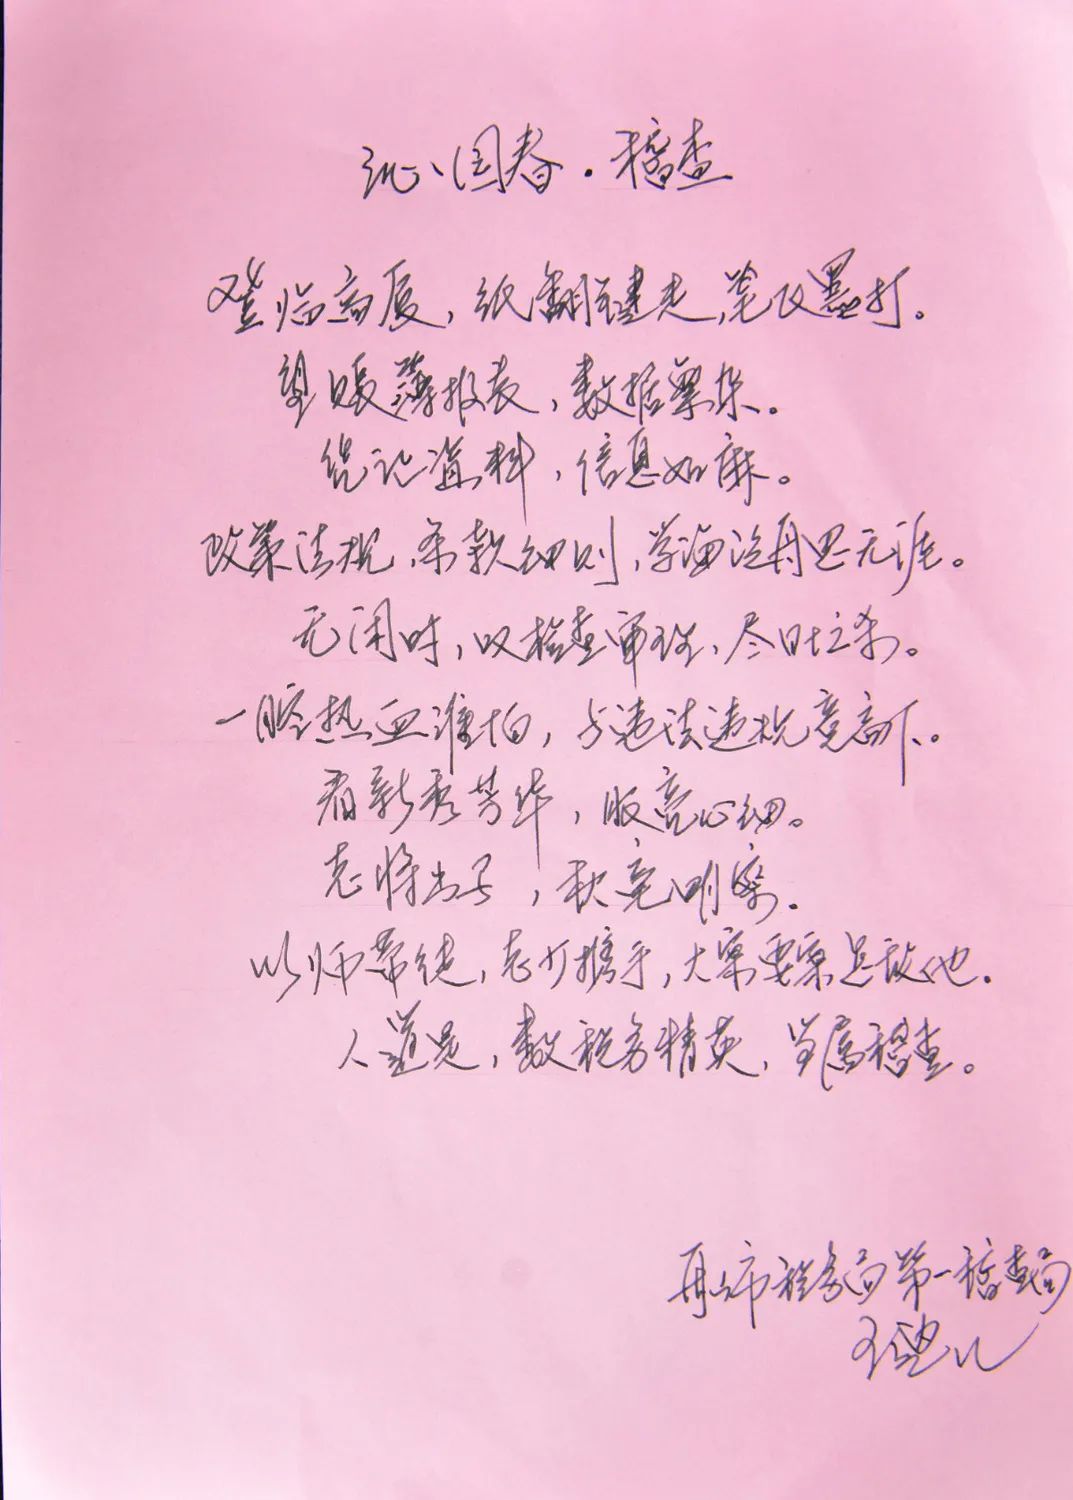 沁园春·稽查
登临高厦，纸翻键走，笔飞墨打。
望账薄报表，数据繁杂。
凭记资料，信息如麻。
政策法规，条款细则，学海泛舟思无涯。
无闲时，叹检查审理，尽日拉杂。
一腔热血谁怕，与违法违规竞高下。
看新秀芳华，眼亮心细。
老将出马，秋毫明察。
以师带徒，老少携手，大案要案足敌他。
人道是，数税务精英，当属稽查。
市税务局第一稽查局